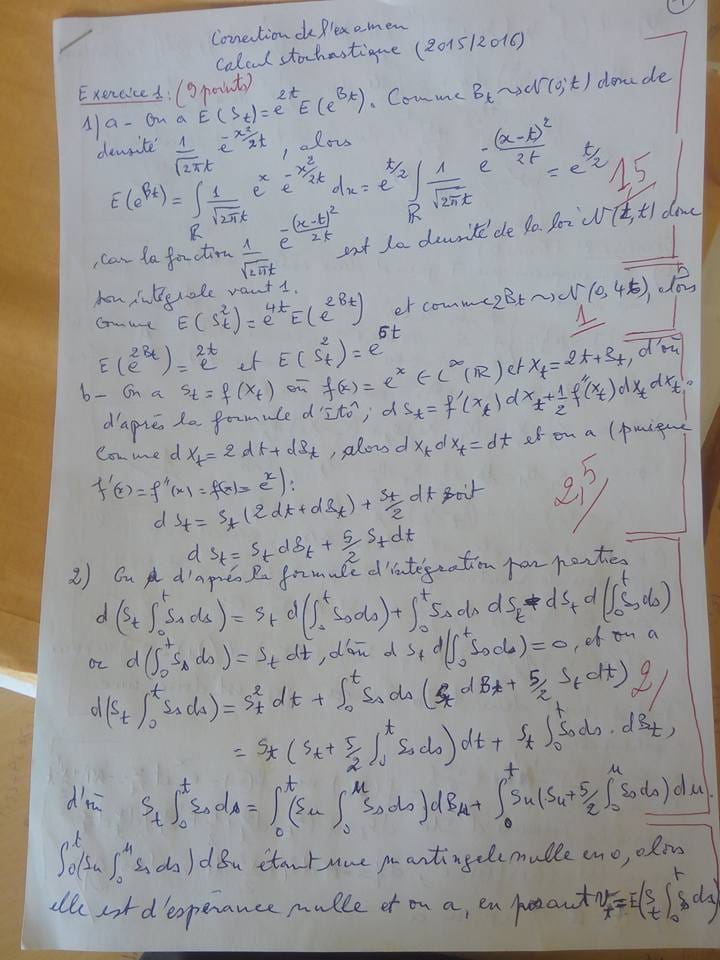 Correction de l'examen
Calcul stochastique (2015/2016)
Exercice 1: (9 points)
1) a - On a E(S_t) = e^{2t} E(e^{B_t}). Comme B_t ~> N(0,t) donc de
densité 1/√(2πt) e^{-x²/2t}, alors
E(e^{B_t}) = ∫_ℝ 1/√(2πt) e^x e^{-x²/2t} dx = e^{t/2} ∫_ℝ 1/√(2πt) e^{-(x-t)²/2t} = e^{t/2}
1,5
, car la fonction 1/√(2πt) e^{-(x-t)²/2t} est la densité de la loi N(t,t) donc
son intégrale vaut 1.
Comme E(S_t²) = e^{4t} E(e^{2B_t}) et comme 2B_t ~> N(0,4t), alors
E(e^{2B_t}) = e^{2t} et E(S_t²) = e^{6t}
1
b - On a S_t = f(X_t) où f(x) = e^x ∈ C^∞(ℝ) et X_t = 2t + B_t, d'où
d'après la formule d'Itô, dS_t = f'(X_t) dX_t + 1/2 f''(X_t) dX_t dX_t.
Comme dX_t = 2dt + dB_t, alors dX_t dX_t = dt et on a (puisque
f'(x) = f''(x) = f(x) = e^x):
dS_t = S_t (2dt + dB_t) + S_t/2 dt soit
2,5
dS_t = S_t dB_t + 5/2 S_t dt
2) On d'après la formule d'intégration par parties
d(S_t ∫_0^t S_s ds) = S_t d(∫_0^t S_s ds) + ∫_0^t S_s ds dS_t + dS_t d(∫_0^t S_s ds)
or d(∫_0^t S_s ds) = S_t dt, d'où dS_t d(∫_0^t S_s ds) = 0, et on a
d(S_t ∫_0^t S_s ds) = S_t² dt + ∫_0^t S_s ds (S_t dB_t + 5/2 S_t dt)
2
= S_t (S_t + 5/2 ∫_0^t S_s ds) dt + S_t ∫_0^t S_s ds . dB_t,
d'où S_t ∫_0^t S_s ds = ∫_0^t (S_u ∫_0^u S_s ds) dB_u + ∫_0^t S_u (S_u + 5/2 ∫_0^u S_s ds) du.
∫_0^t (S_u ∫_0^u S_s ds) dB_u étant une martingale nulle en 0, alors
elle est d'espérance nulle et on a, en posant V_t = E(S_t ∫_0^t S_s ds)